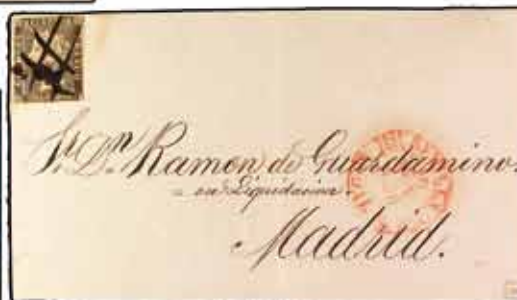 Sr. Dn. Ramon de Guardamino.
en Liquidacion.
Madrid.